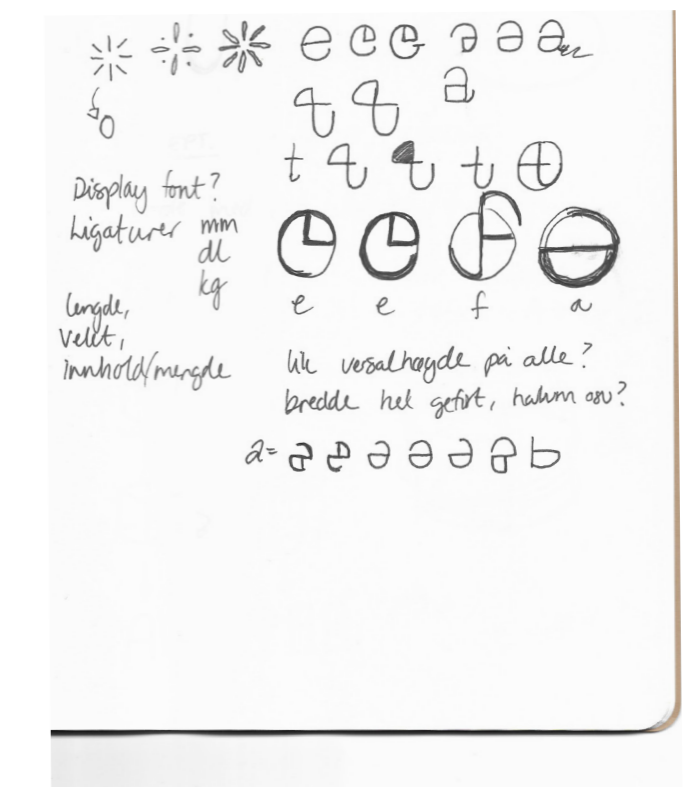 e e e a a a
a
t
Display font?
Ligaturer mm
dl
kg
lengde,
vekt,
innhold/mengde
e e f a
lik versalhøyde på alle?
bredde hel gefirt, halv osv?
a=
b